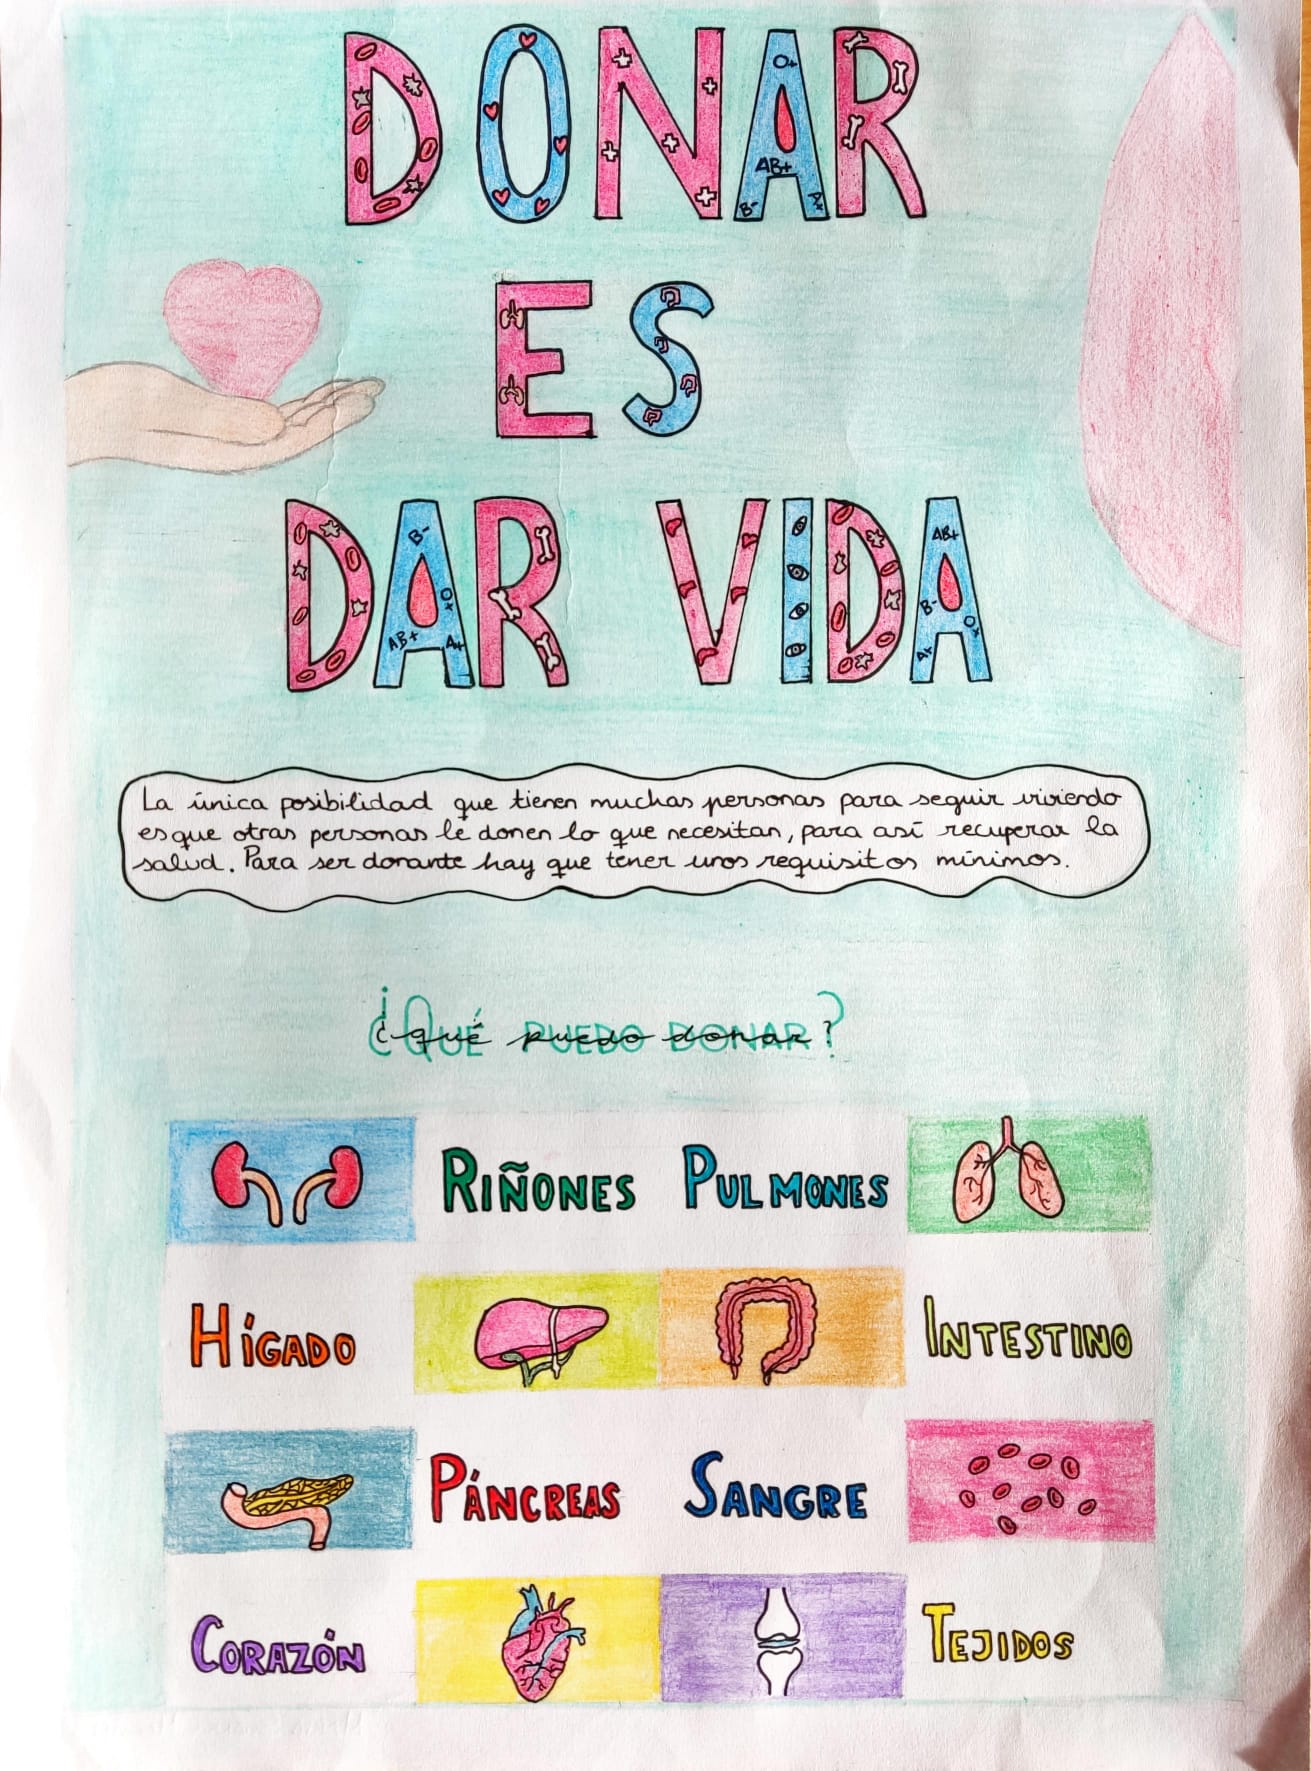 DONAR
ES
DAR VIDA
La única posibilidad que tienen muchas personas para seguir viviendo
es que otras personas le donen lo que necesitan, para así recuperar la
salud. Para ser donante hay que tener unos requisitos mínimos.
¿QUÉ PUEDO DONAR?
¿qué puedo donar?
RIÑONES PULMONES
HÍGADO INTESTINO
PÁNCREAS SANGRE
CORAZÓN TEJIDOS